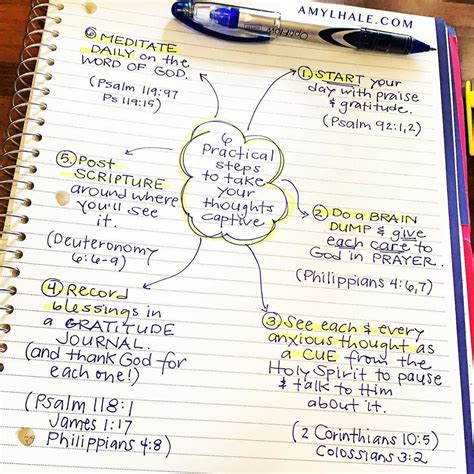 AMYLHALE.COM
6 Practical
steps
to take
your
thoughts
captive
① START your
day with praise
& gratitude.
(Psalm 92:1,2)
② Do a BRAIN
DUMP & give
each care to
God in PRAYER.
(Philippians 4:6,7)
③ See each & every
anxious thought as
a CUE from the
Holy Spirit to pause
& talk to Him
about it.
(2 Corinthians 10:5)
Colossians 3:2
④ Record
blessings in
a GRATITUDE
JOURNAL.
(and thank God for
each one!)
(Psalm 118:1
James 1:17
Philippians 4:8)
⑤ Post
SCRIPTURE
around where
you'll see
it.
(Deuteronomy
6:6-9)
⑥ MEDITATE
DAILY on the
WORD OF GOD.
(Psalm 119:97
Ps 119:15)